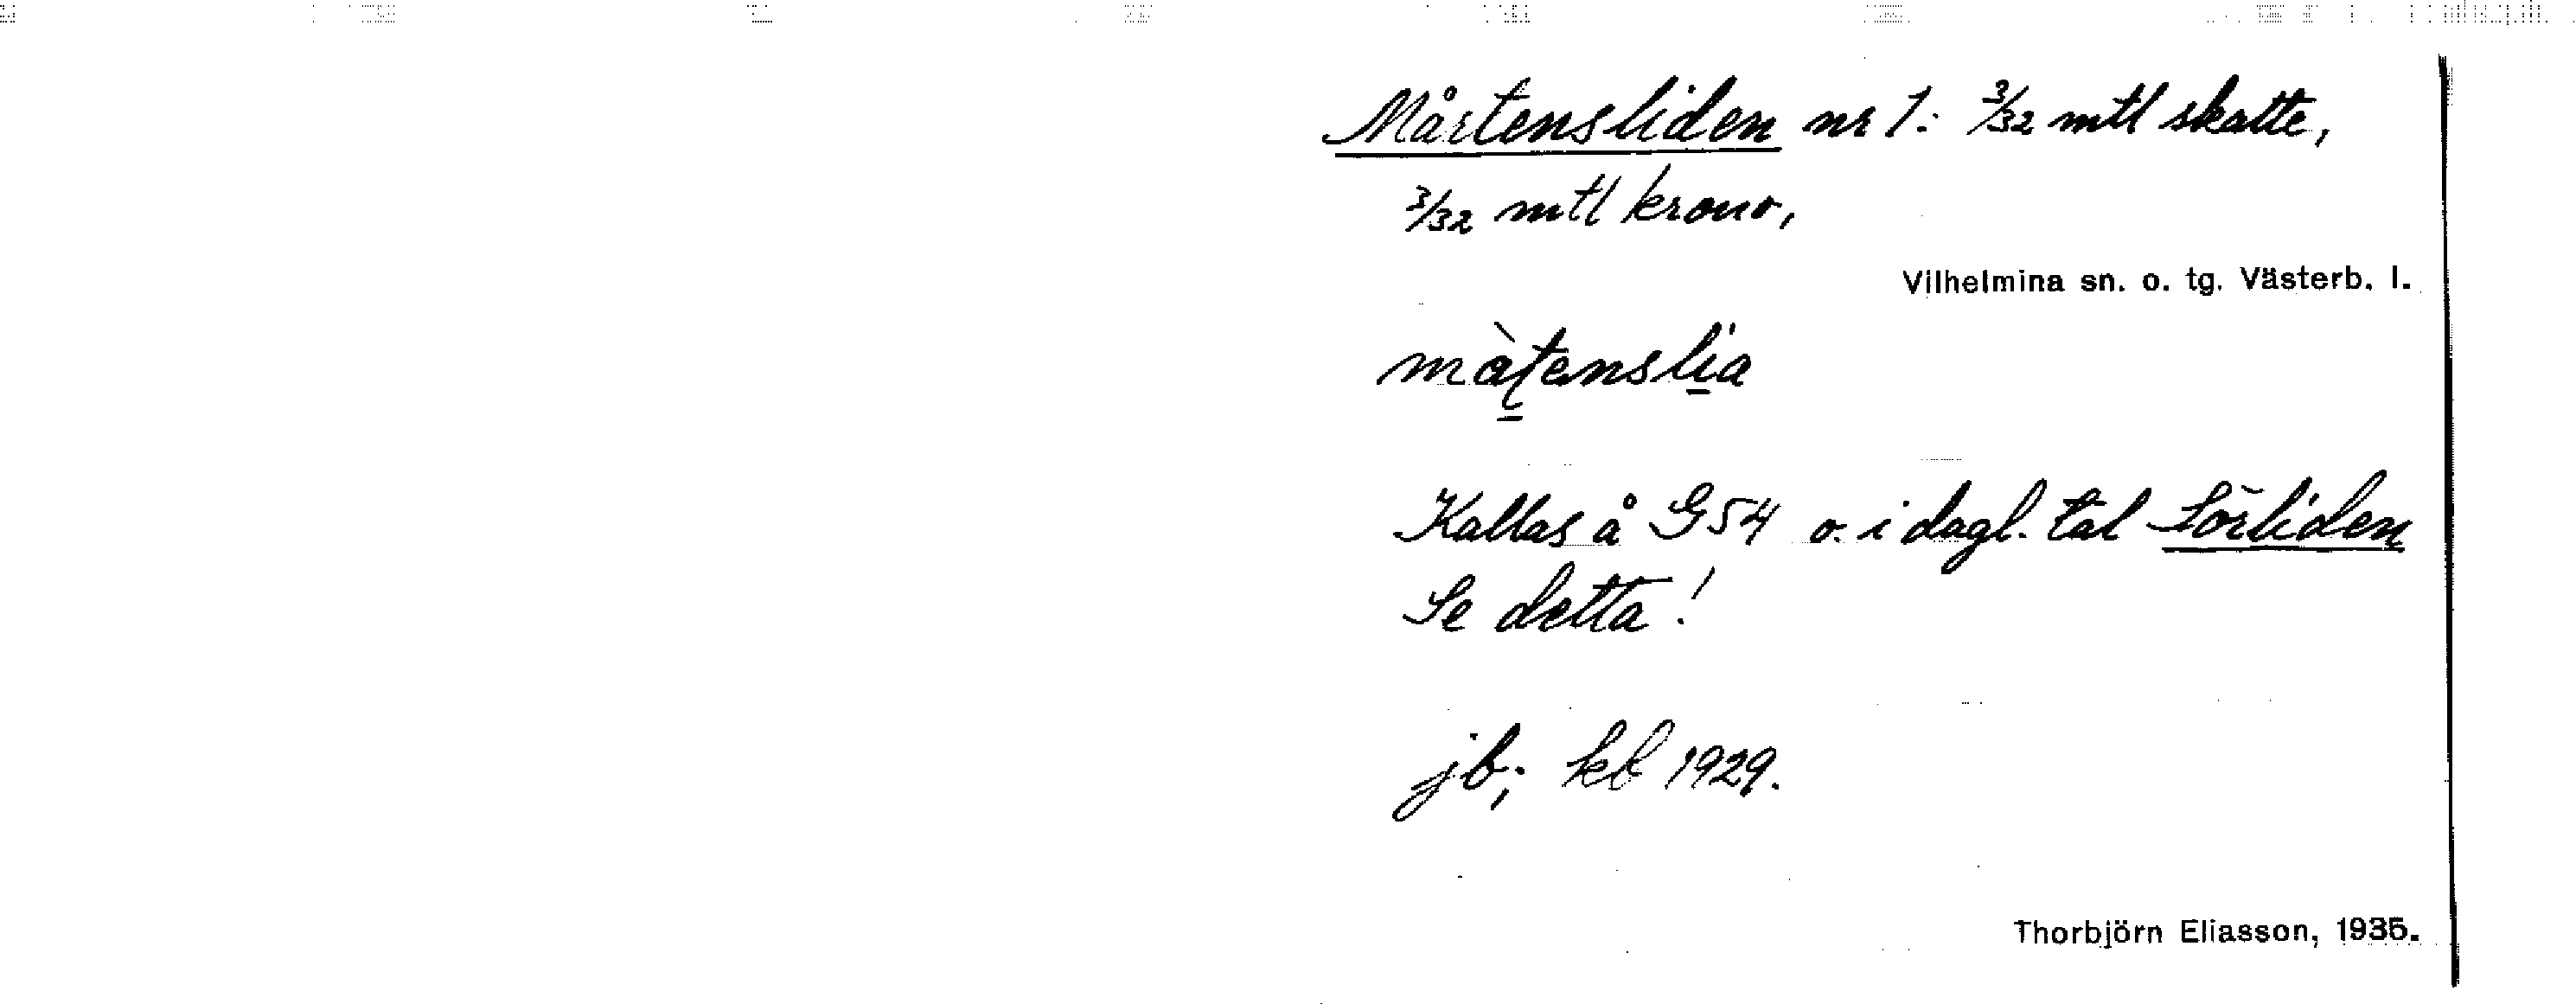 Mårtensliden nr 1: 3/32 mtl skatte,
3/32 mtl krono,
Vilhelmina sn. o. tg. Västerb. l.
màtenslia
Kallas å G54 o. i dagl. tal Sörliden
Se detta!
jb; kb 1929.
Thorbjörn Eliasson, 1935.